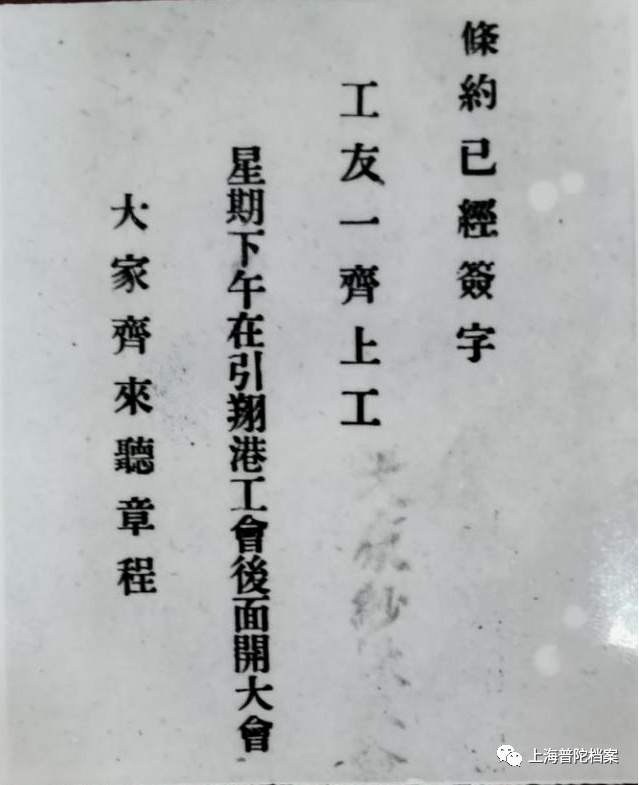 條約已經簽字
工友一齊上工
星期下午在引翔港工會後面開大會
大家齊來聽章程
上海普陀档案